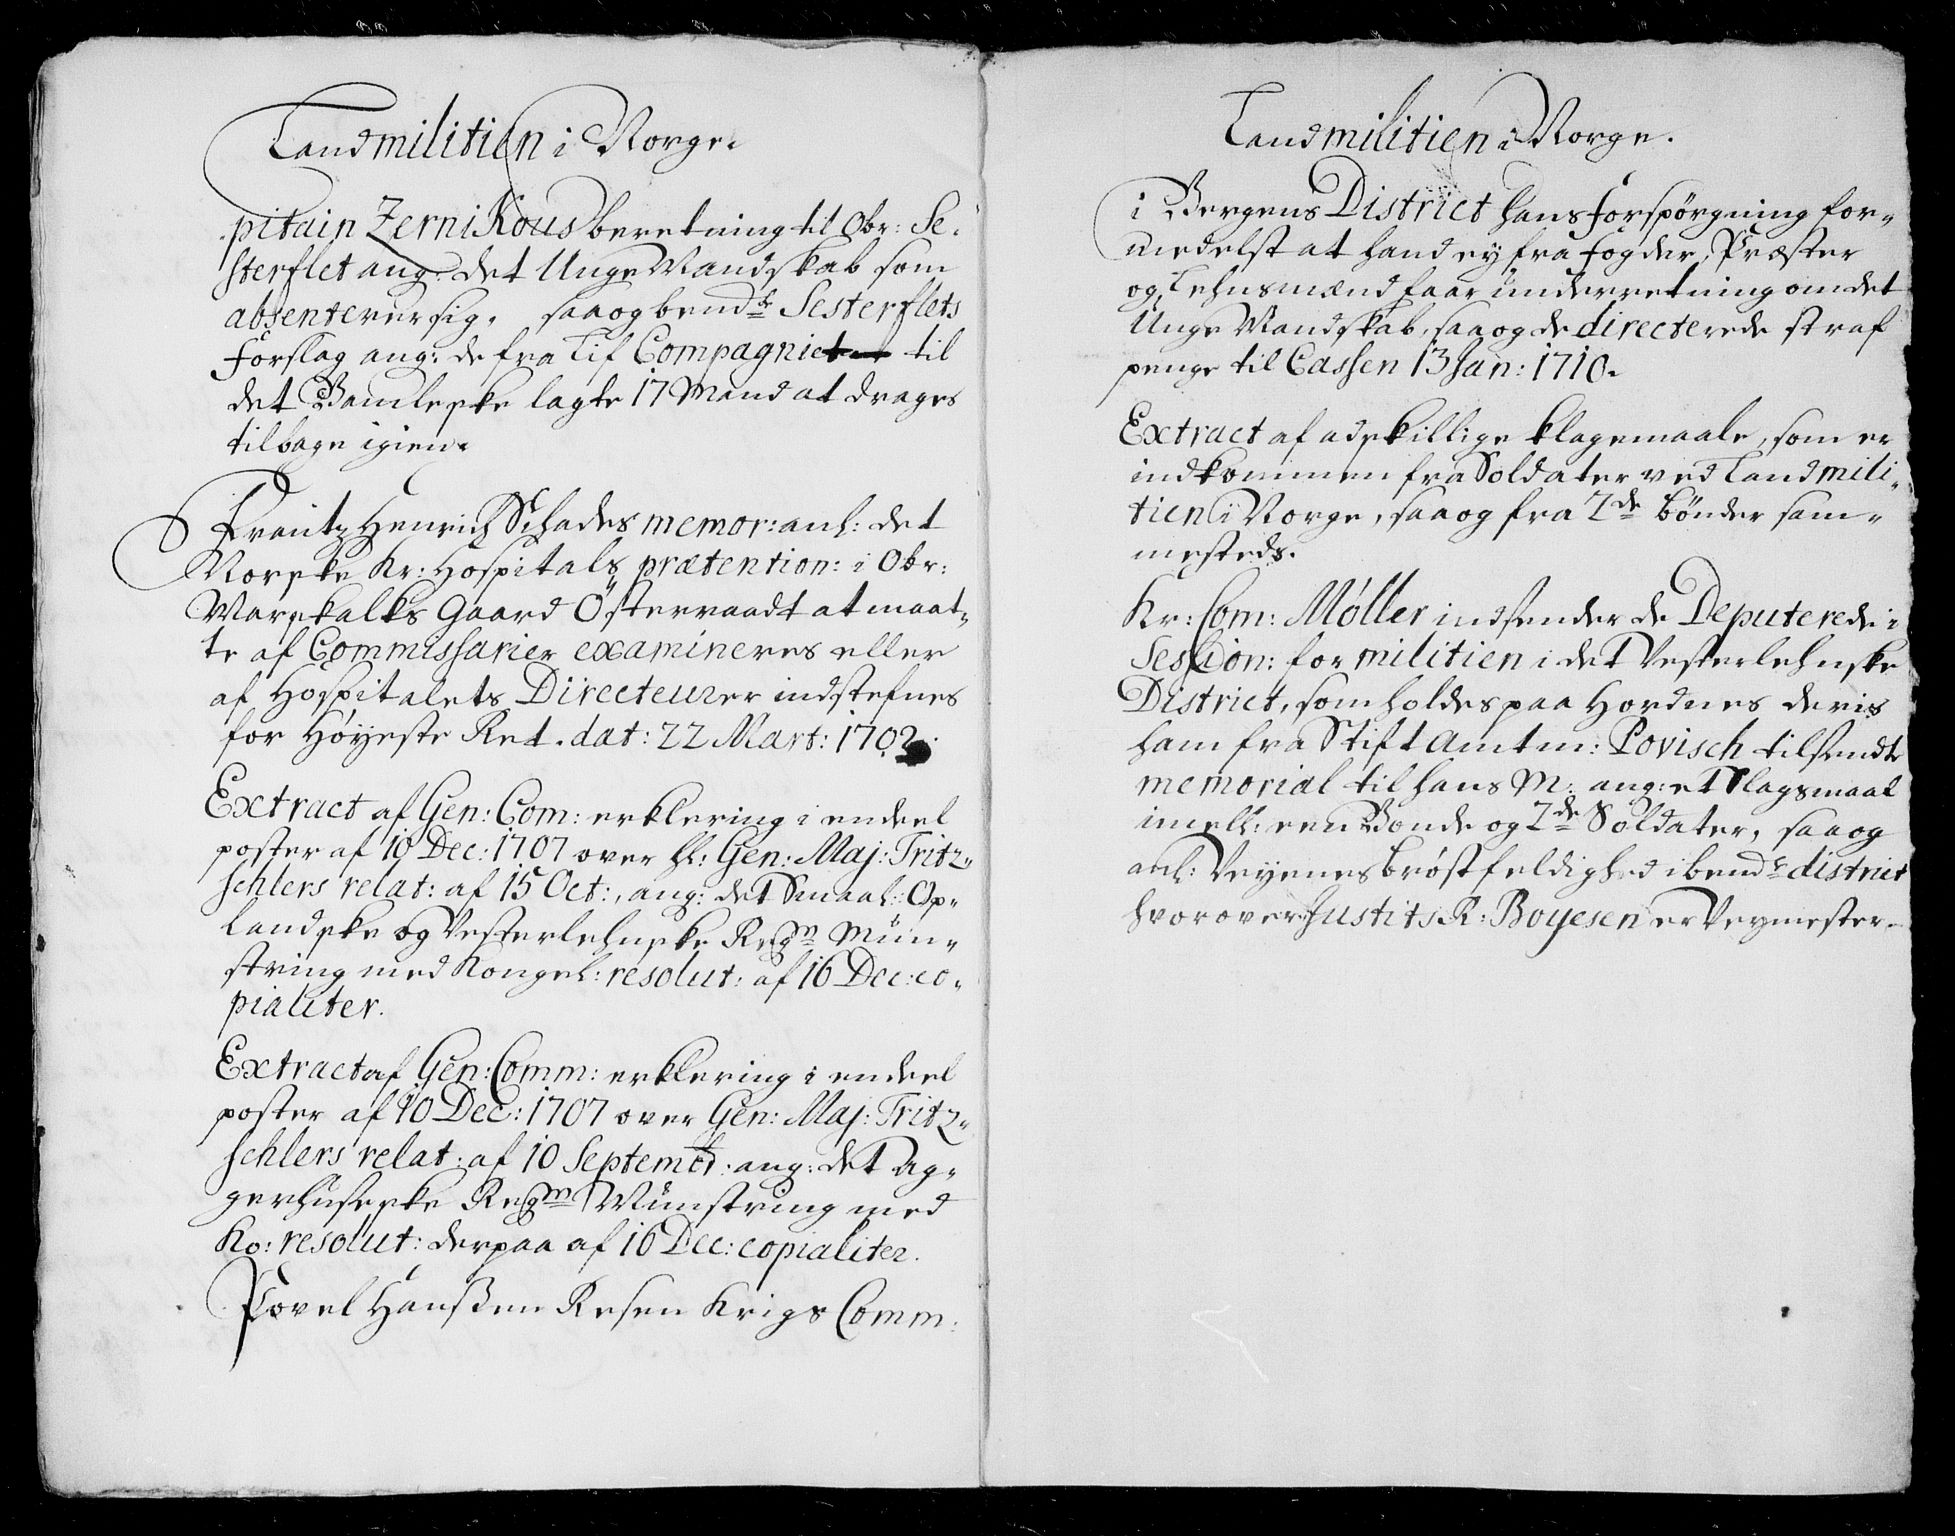 Landmilitien i Norge.
pitain Zernikous beretning til Obr: Se-
sterflet ang: det Unge Mandskab som
absenterer sig, saa og bemd:te Sesterflets
forslag ang: de fra Lif Compagniet til
det Bamleske lagte 17 Mand at drages
tilbage igien.
Frantz Henrich Schades memor: anl: det
Norske Kr: Hospitals prætention: i Obr:
Marskalks Gaard Österraadt at maat-
te af Commissarier examineres eller
af Hospitalets Directeurer indstefnes
for Høyeste Ret. dat: 22 Mart: 1702.
Extract af Gen: Com: erklering i endeel
poster af 10 Dec: 1707 over hl: Gen: Maj: Tritz-
schlers relat: af 15 Oct:, ang: det Smaal: Op-
landske og Vesterlehnske Regm Mün-
string med Kongel: resolut: af 16 Dec: co-
pialiter.
Extract af Gen: Comm: erklering i endeel
poster af 10 Dec: 1707 over Gen: Maj: Tritz-
schlers relat: af 10 Septembr: ang: det Ag-
gerhuseske Regm Münstring med
Ko: resolut: derpaa af 16 Dec: copialiter.
Povel Hanßen Resen Krigs Comm:
Landmilitien i Norge.
i Bergens District hans forspörgning for-
medelst at hand ey fra fogder, Præster
og Lehnsmænd faar underretning om det
Unge Mandskab, saa og de directerede straf
penge til Cassen 13 Jan: 1710.
Extract af adskillige klagemaale, som er
indkommen fra Soldater ved Landmili-
tien i Norge, saa og fra 2de bönder sam-
mesteds.
Kr: Com: Møller indsender de Deputerede i
Session: for militien i det Vesterlehnske
District, som holdes paa Hordnes deris
ham fra Stift Amtm: Povisch tilsendte
memorial til hans M: ang: et Slagsmaal
imell: een Bonde og 2de Soldater, saa og
anl: Veyenes brøstfeldighed i bemd:te district
hvorover Justits R: Boyesen er Veymester.